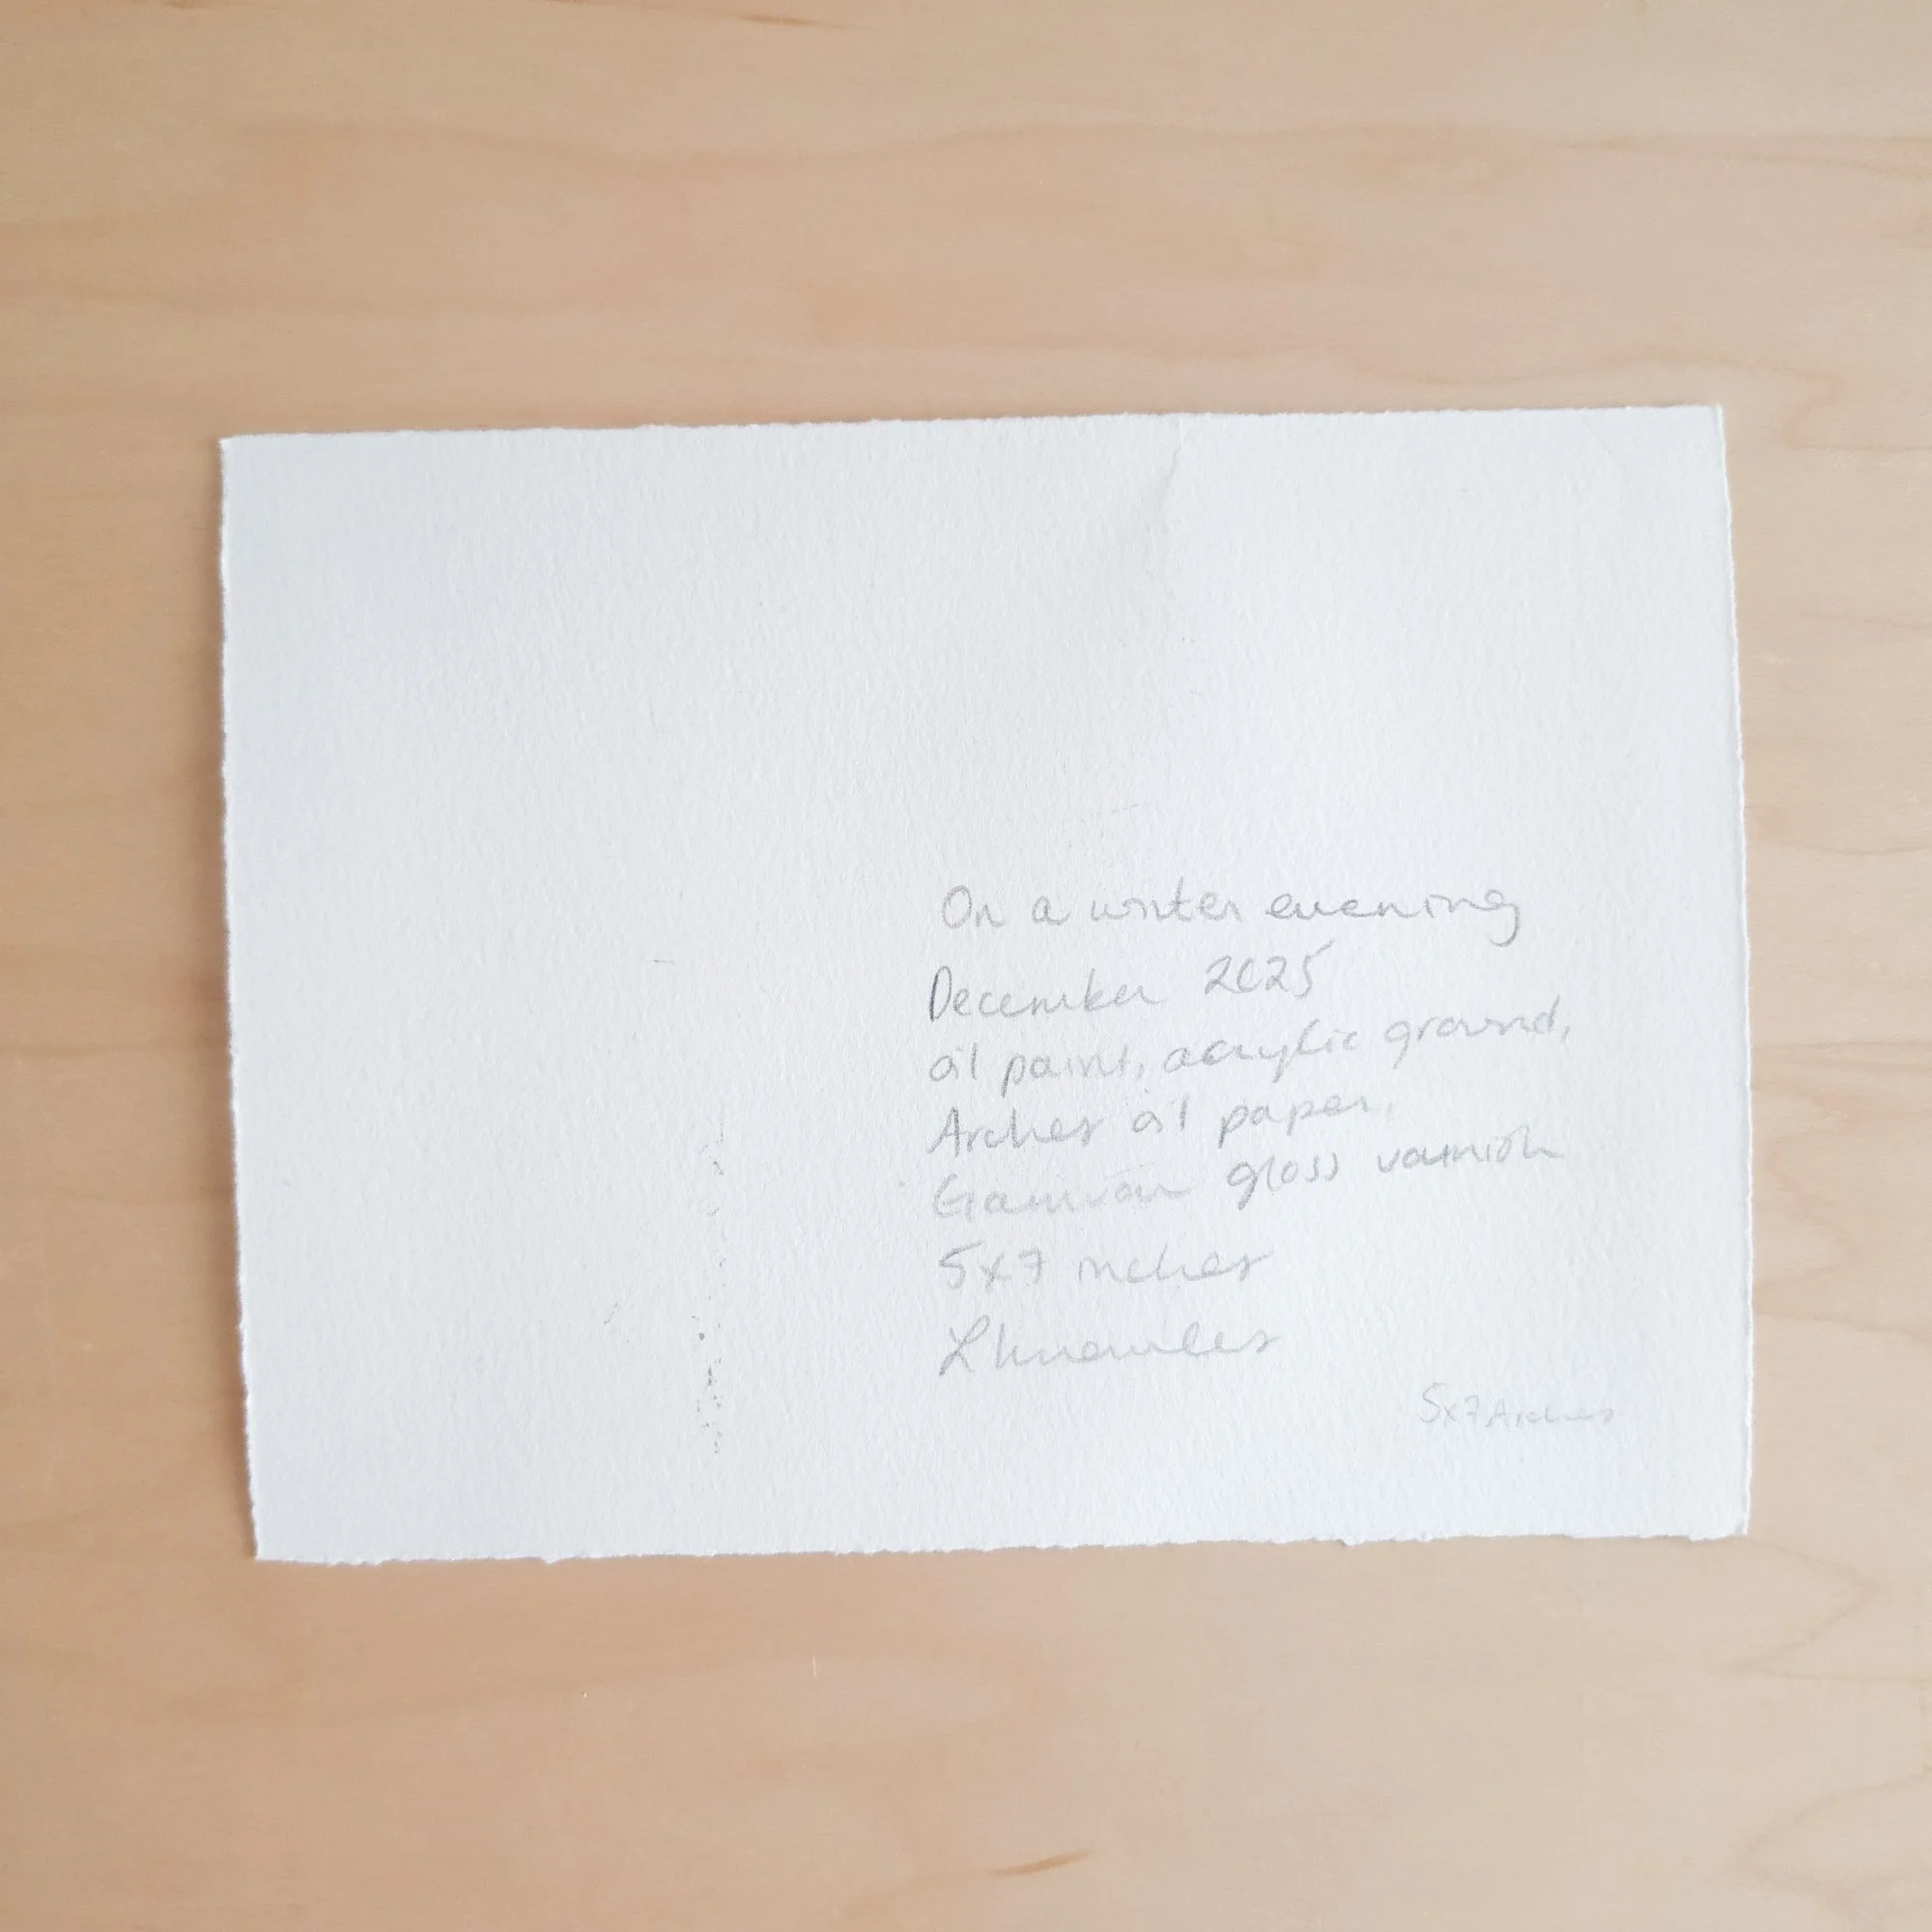 On a winter evening
December 2025
oil paint, acrylic ground,
Arches oil paper.
Gamvar gloss varnish
5x7 inches
LKnowles
5x7 Arches